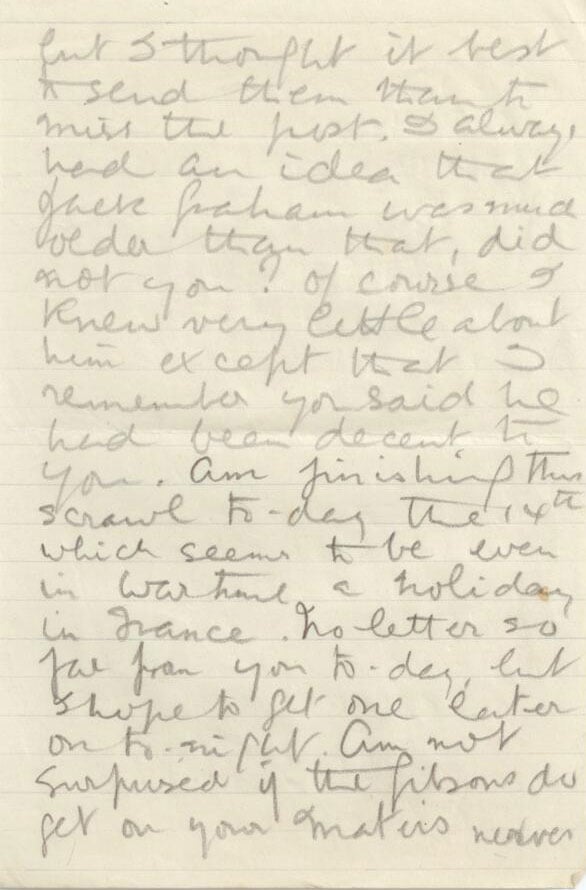 but I thought it best
to send them than to
miss the post. I always
had an idea that
Jack Graham was much
older than that, did
not you? Of course I
knew very little about
him except that I
remember you said he
had been decent to
you. Am finishing this
scrawl to-day the 14th
which seems to be even
in wartime a holiday
in France. No letter so
far from you to-day, but
I hope to get one later
on to-night. Am not
surprised if the Gibsons do
get on your Mater's nerves